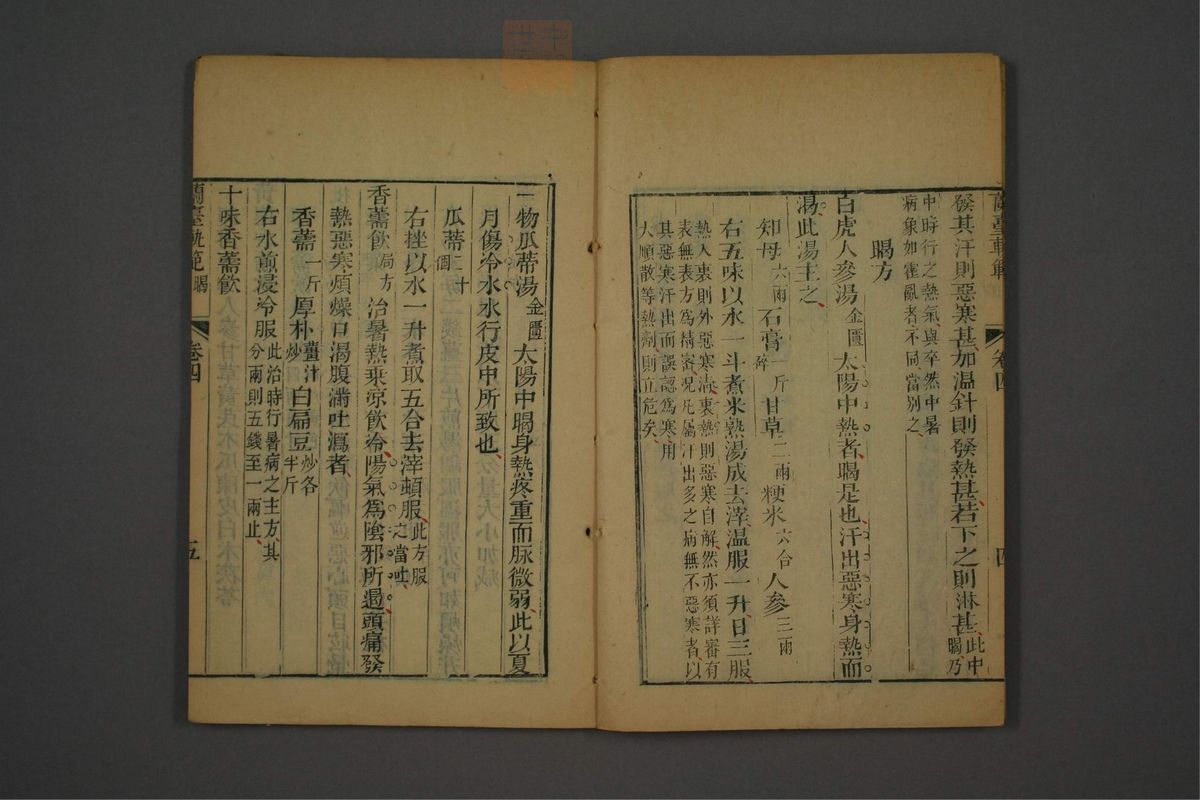 蘭臺軌範
卷四
四
發其汗則惡寒甚加温針則發熱甚若下之則淋甚此中暍乃
中時行之熱氣與卒然中暑
病象如霍亂者不同當别之
暍方
白虎人參湯金匱 太陽中熱者暍是也汗出惡寒身熱而
渴此湯主之
知母六兩 石膏一斤碎 甘草二兩 粳米六合 人參三兩
右五味以水一斗煮米熟湯成去滓温服一升日三服
熱入裏則外惡寒清裏熱則惡寒自解然亦須詳審有
表無表方爲精密况凡屬汗出多之病無不惡寒者以
其惡寒汗出而誤認爲寒用
大順散等熱劑則立危矣
一物瓜蒂湯金匱 太陽中暍身熱疼重而脉微弱此以夏
月傷冷水水行皮中所致也
瓜蒂二十個
右挫以水一升煮取五合去滓頓服此方服之當吐
香薷飲局方 治暑熱乘涼飲冷陽氣爲陰邪所遏頭痛發
熱惡寒煩燥口渴腹滿吐瀉者
香薷一斤 厚朴薑汁炒 白扁豆炒各半斤
右水煎浸冷服此治時行暑病之主方其
分兩則五錢至一兩止
十味香薷飲
蘭臺軌範 暍
卷四
五